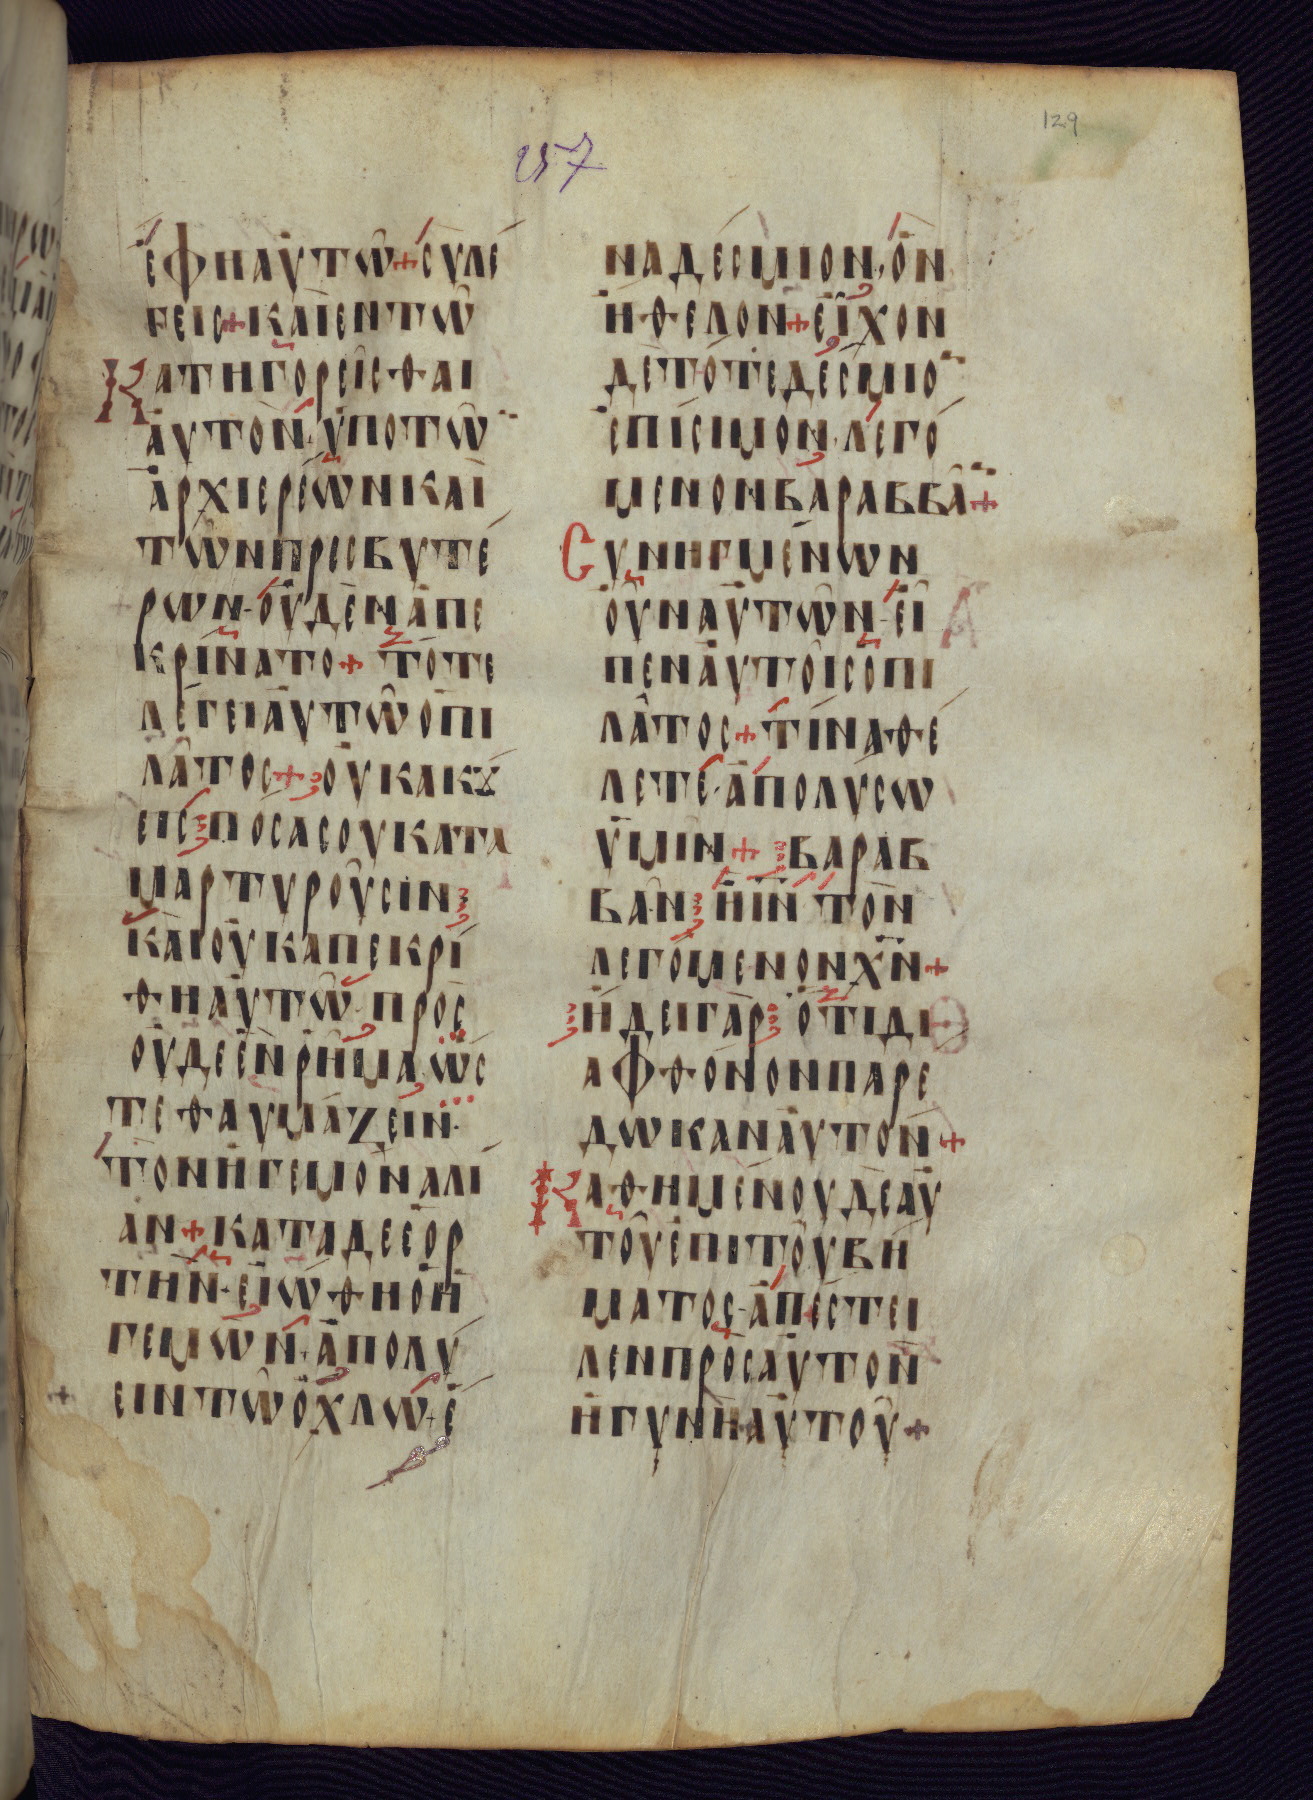 129
257
ἔφη αὐτῶ + σὺ λέ
γεις + καὶ ἐν τῶ
Κατηγορεῖσθαι
αὐτὸν ὑπὸ τῶν
ἀρχιερέων καὶ
τῶν πρεσβυτέ
ρων · οὐδὲν ἀπε
κρίνατο + τότε
λέγει αὐτῶ ὁ πι
λᾶτος + οὐκ ἀκού
εις πόσα σου κατα
μαρτυροῦσιν
καὶ οὐκ ἀπεκρί
θη αὐτῶ πρὸς
οὐδὲ ἓν ῥῆμα ὥς
τε θαυμάζειν
τὸν ἡγεμόνα λί
αν + κατὰ δὲ ἑορ
τὴν · εἰώθη ὁ ἡ
γεμὼν · ἀπολύ
ειν τῶ ὄχλω + ἕ
να δέσμιον, ὃν
ἤθελον + εἶχον
δὲ τότε δέσμιον
ἐπίσιμον · λεγό
μενον βαραββᾶν +
Συνηγμένων
οὖν αὐτῶν · εἶ
πεν αὐτοῖς ὁ πι
λᾶτος + τίνα θέ
λετε · ἀπολύσω
ὑμῖν + βαραβ
βᾶν ἢ ἰν τὸν
λεγόμενον χν +
ἤδει γὰρ ὅτι δι
ὰ φθόνον παρέ
δωκαν αὐτόν +
Καθημένου δὲ αὐ
τοῦ ἐπὶ τοῦ βή
ματος · ἀπέστει
λεν πρὸς αὐτὸν
ἡ γυνὴ αὐτοῦ +